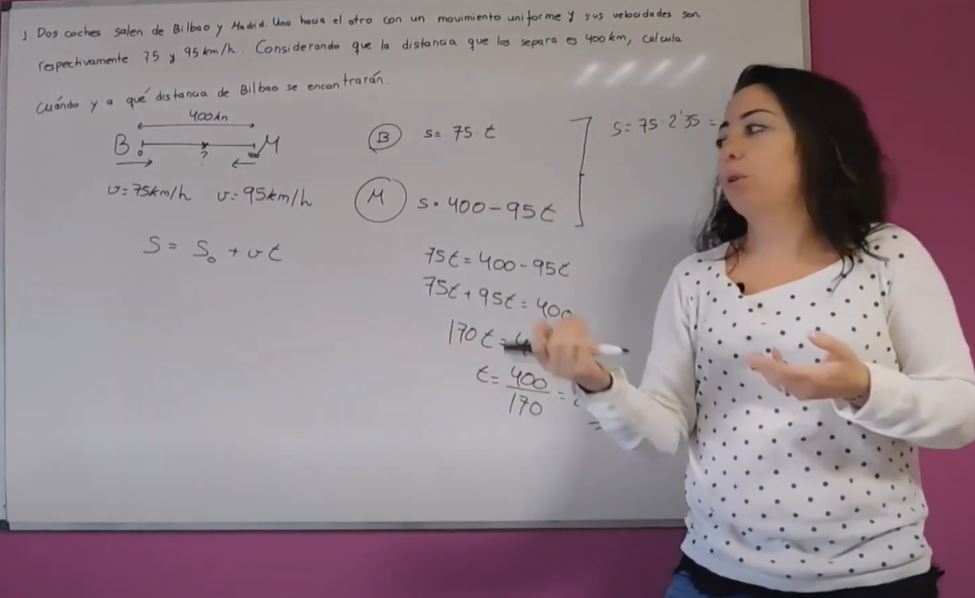 1. Dos coches salen de Bilbao y Madrid. Uno hacia el otro con un movimiento uniforme y sus velocidades son
respectivamente 75 y 95 km/h. Considerando que la distancia que los separa es 400 km, calcula
cuándo y a qué distancia de Bilbao se encontrarán.
400 km
B M
?
v=75km/h v=95km/h
S = S₀ + vt
B s= 75·t
M s=400-95t
75t=400-95t
75t+95t=400
170t=4
t=400/170=
=
S=75·2'35=